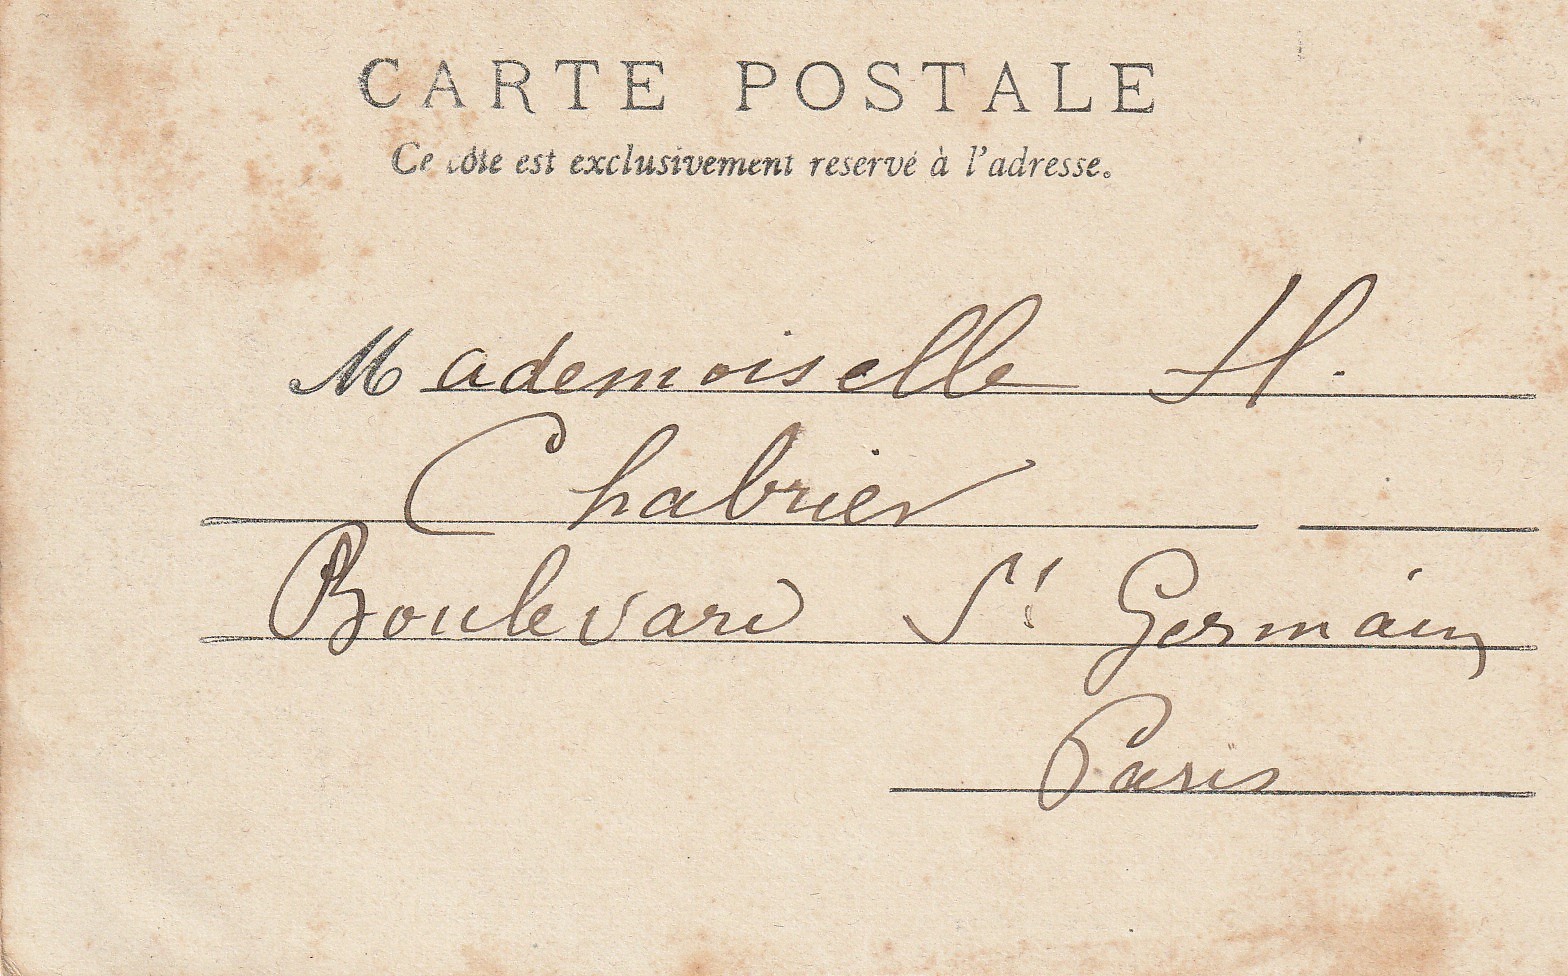 CARTE POSTALE
Ce côté est exclusivement reservé à l'adresse.
Mademoiselle H.
Chabrier
Boulevard St Germain
Paris